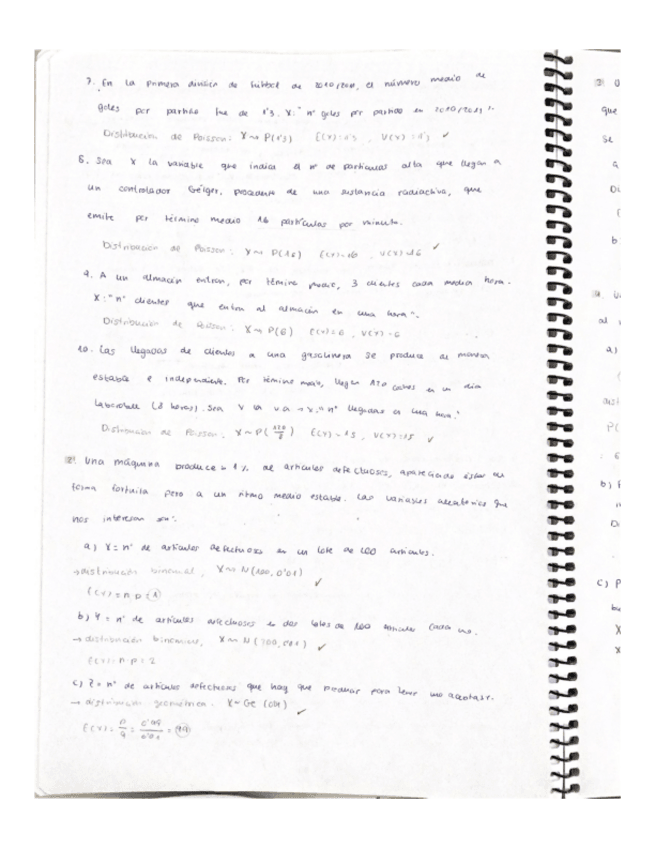 7. En la primera división de fútbol de 2010/2011, el número medio de
goles por partido fue de 1'3. X: "nº goles por partido en 2010/2011".
Distribución de Poisson: X ~ P(1'3) E(X)=1'3, V(X)=1'3 ✓
8. Sea X la variable que indica el nº de partículas alfa que llegan a
un controlador Geiger, procedente de una sustancia radiactiva, que
emite por término medio 16 partículas por minuto.
Distribución de Poisson: X ~ P(16) E(X)=16, V(X)=16 ✓
9. A un almacén entran, por término medio, 3 clientes cada media hora.
X: "nº clientes que entran al almacén en una hora".
Distribución de Poisson: X ~ P(6) E(X)=6, V(X)=6
10. Las llegadas de clientes a una gasolinera se produce de manera
estable e independiente. Por término medio, llegan 120 coches en un día
laborable (8 horas). Sea X la v.a → X: "nº llegadas en una hora."
Distribución de Poisson: X ~ P(120/8) E(X)=15, V(X)=15 ✓
2. Una máquina produce 1% de artículos defectuosos, apareciendo en
forma fortuita pero a un ritmo medio estable. Las variables aleatorias que
nos interesan son:
a) X = nº de artículos defectuosos en un lote de 100 artículos.
→ distribución binomial, X ~ N(100, 0'01) ✓
E(X) = n·p = 1
b) Y = nº de artículos defectuosos en dos lotes de 100 artículos cada uno.
→ distribución binomial, X ~ N(200, 0'01) ✓
E(X) = n·p = 2
c) Z = nº de artículos defectuosos que hay que producir para tener uno aceptable.
→ distribución geométrica. X ~ Ge ✓
E(X) = p/q = 0'99/0'01 = 99